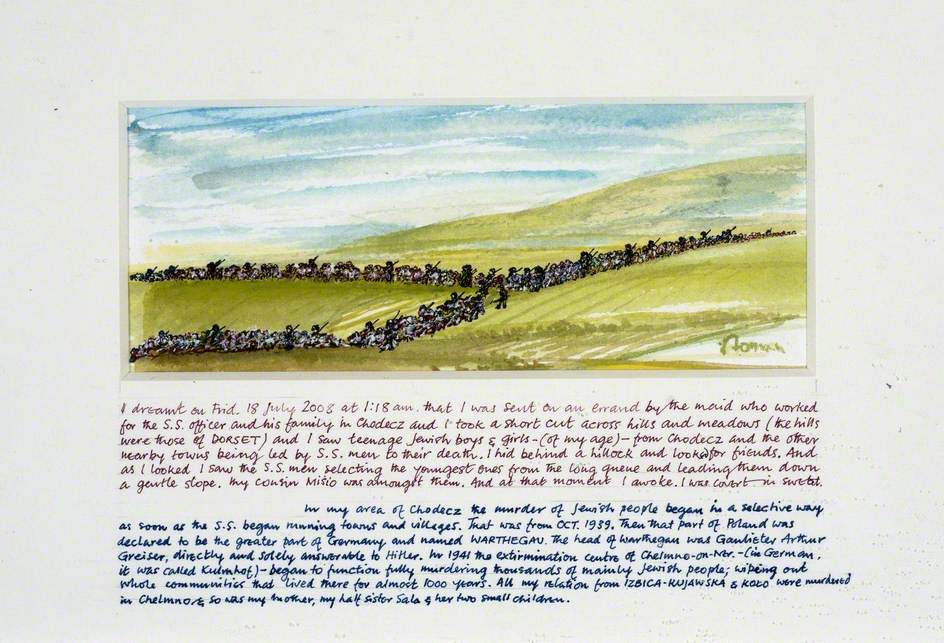 Roman
I dreamt on Frid. 18 July 2008 at 1:18 am. that I was sent on an errand by the maid who worked
for the S.S. officer and his family in Chodecz and I took a short cut across hills and meadows (the hills
were those of DORSET) and I saw teenage Jewish boys & girls - (of my age) - from Chodecz and the other
nearby towns being led by S.S. men to their death. I hid behind a hillock and looked for friends. And
as I looked I saw the S.S. men selecting the youngest ones from the long queue and leading them down
a gentle slope. My cousin Misio was amongst them. And at that moment I awoke. I was covert in swetet.
In my area of Chodecz the murder of Jewish people began in a selective way
as soon as the S.S. began running towns and villages. That was from OCT. 1939. Then that part of Poland was
declared to be the greater part of Germany and named WARTHEGAU. The head of Warthegau was Gauliter Arthur
Greiser, directly and solely answerable to Hitler. In 1941 the extirmination centre of Chelmno-on-Ner - (in German,
it was called Kulmhof) - began to function fully murdering thousands of mainly Jewish people; wipeing out
whole communities that lived there for almost 1000 years. All my relation from IZBICA-KUJAWSKA & KOŁO were murdered
in Chelmno & so was my mother, my half sister Sala & her two small children.